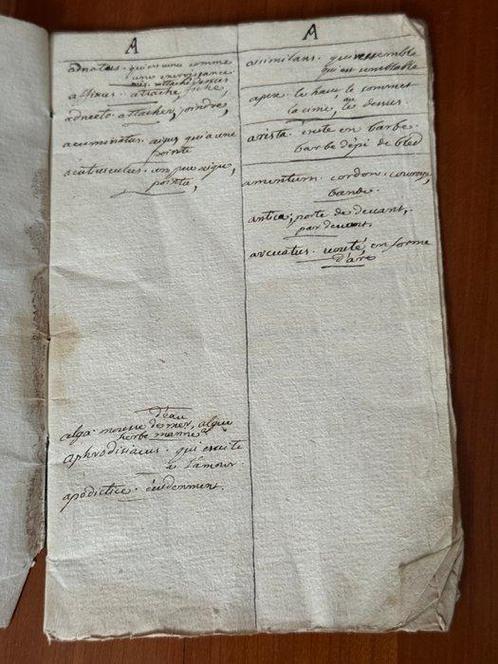 A
adnatus. qui est une comme
une excroissance
affixus. attaché, fiché,
adnecto. attacher, joindre,
acuminatus. aigus qui a une
pointe
acutiusculus. un peu aigu,
pointu,
d'eau
alga. mousse de mer, algue
herbe marine
aphrodisiacus. qui excite
à l'amour.
apodictice. évidemment.
A
assimilans. qui ressemble
qui est semblable
apex. le haut le sommet
la cime, ou le dessus.
arista. crete en barbe.
barbe d'épi de bled
amentum. cordon. couroye,
bande.
antica; porte de devant,
par devant.
arcuatus. vouté, en forme
d'arc